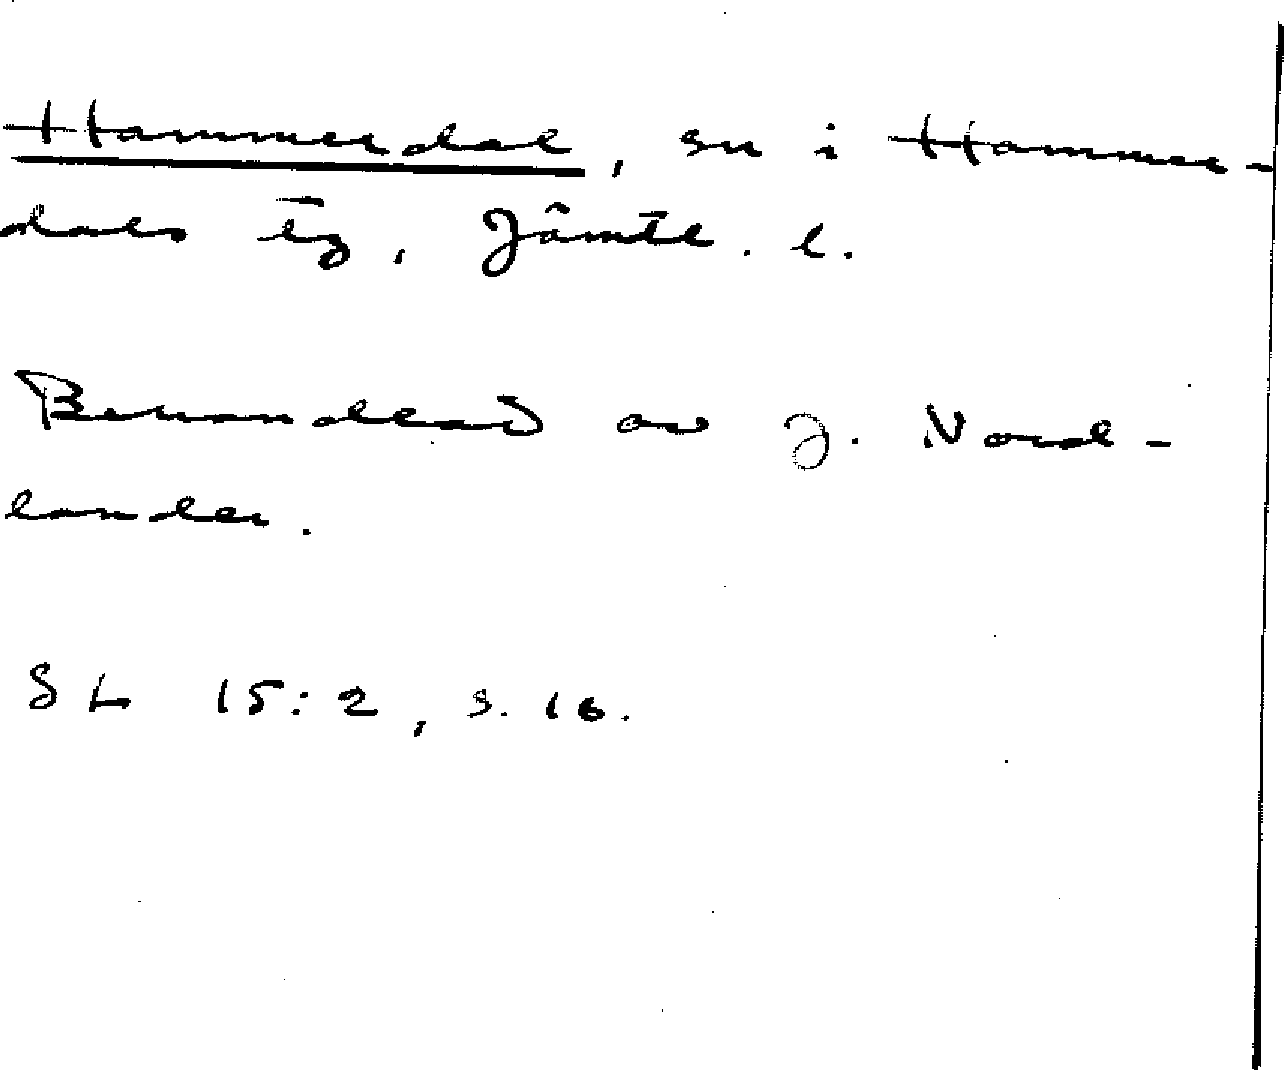 Hammerdal, sn i Hammer-
dals tg, Jämtl. l.
Behandlad av J. Nord-
lander.
SL 15:2, s. 16.